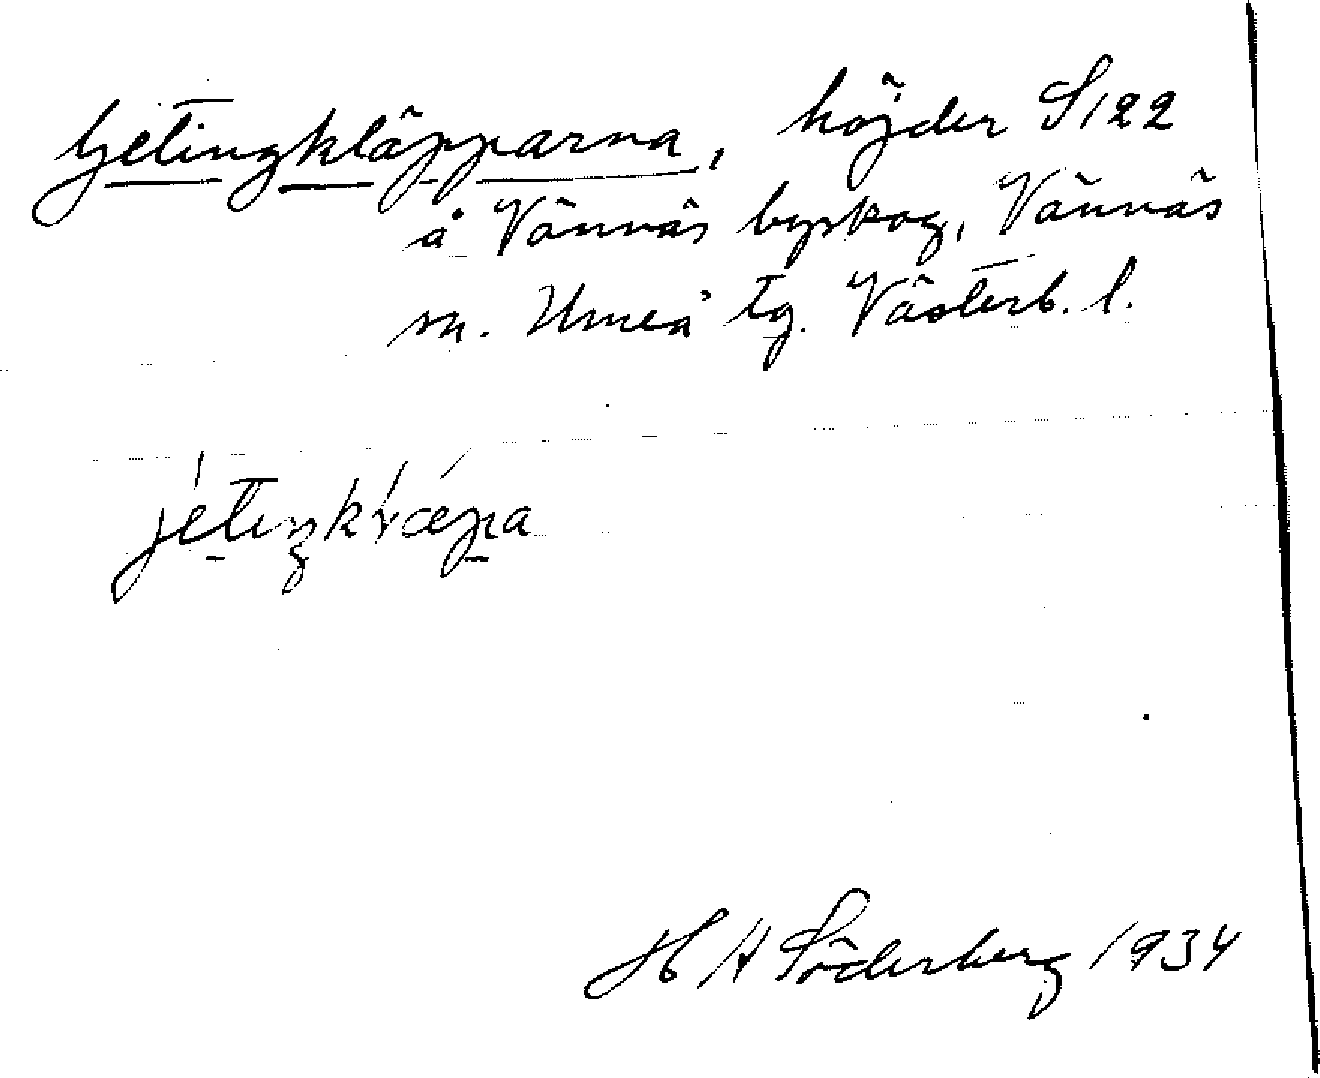 Getingkläpparna, höjder S122
å Vännäs byskog, Vännäs
sn. Umeå tg. Västerb. l.
jetiŋkɽæpa
H A Söderberg 1934